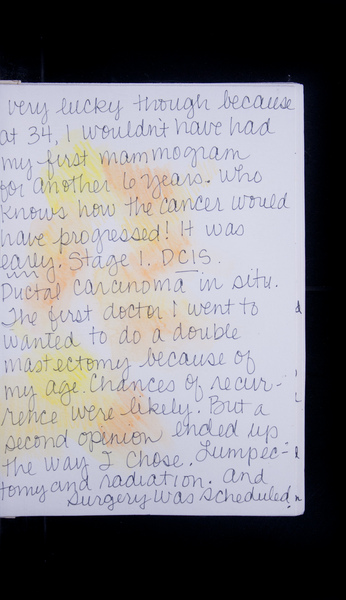 very lucky though because
at 34, I wouldn't have had
my first mammogram
for another 6 years. Who
knows how the cancer would
have progressed! It was
early. Stage 1. DCIS.
Ductal carcinoma in situ.
The first doctor I went to
wanted to do a double
mastectomy because of
my age. Chances of recur-
rence were likely. But a
second opinion ended up
the way I chose. Lumpec-
tomy and radiation. And
surgery was scheduled